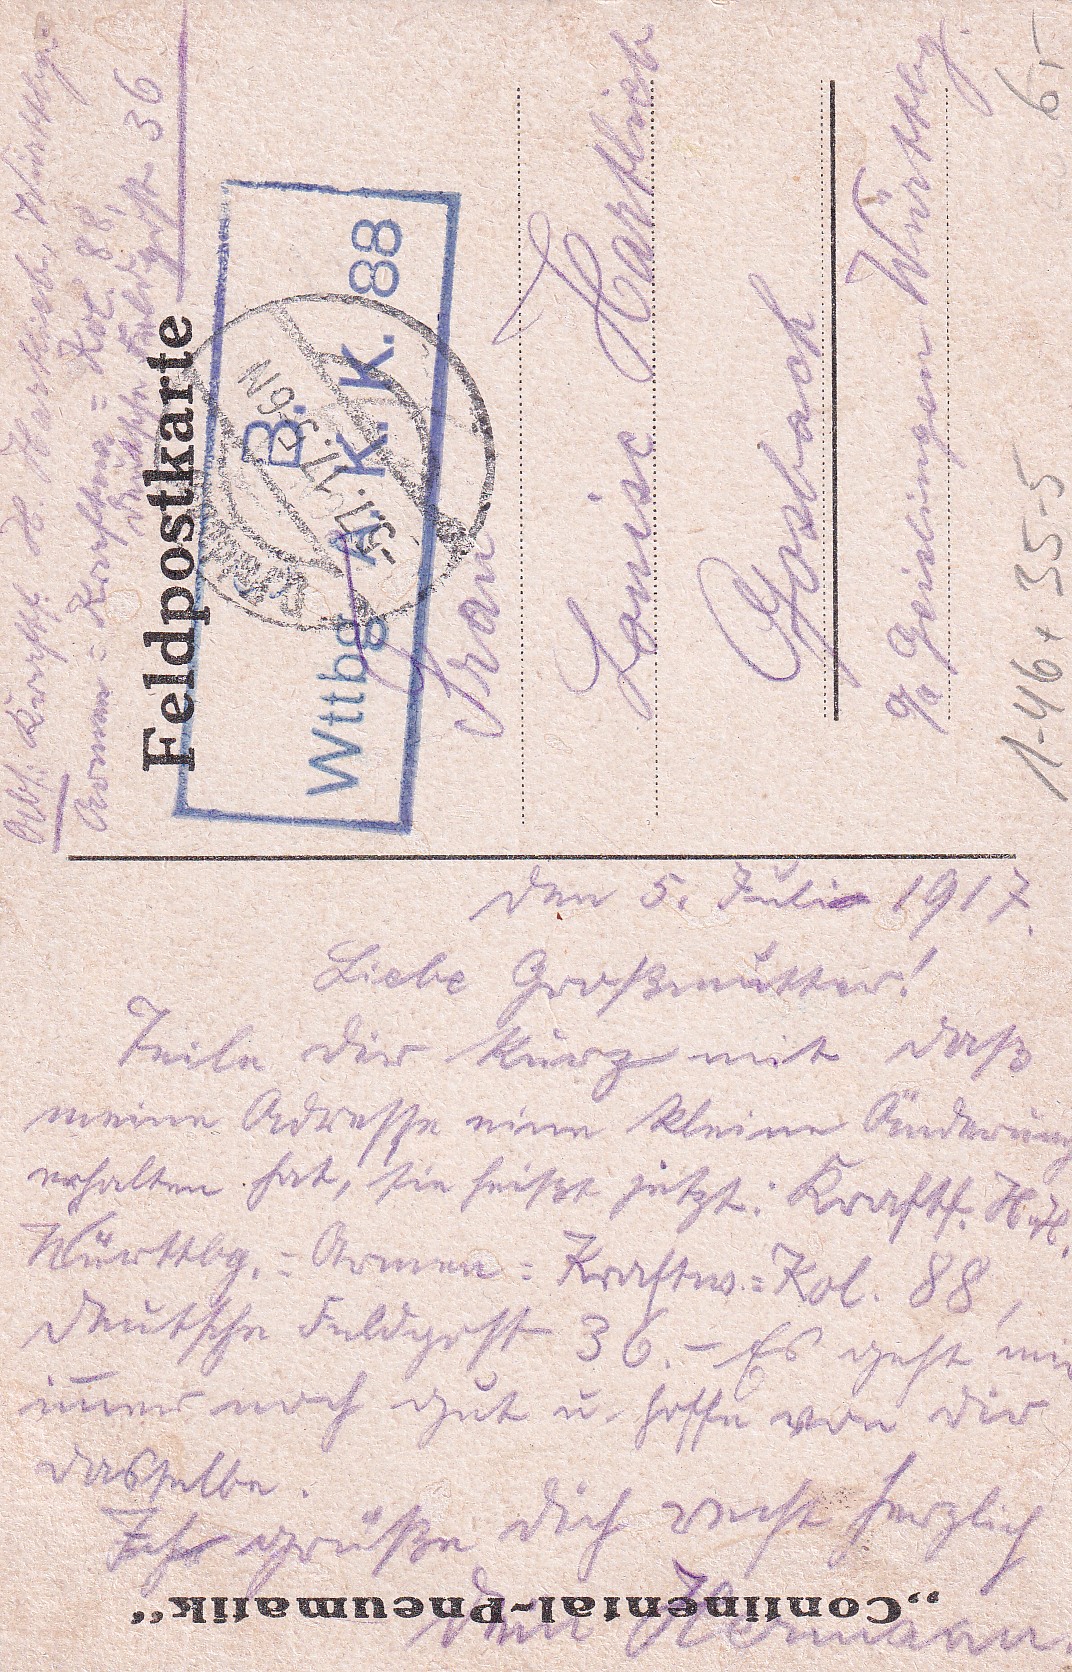 Abs: Kraftf. H Hartlieb, Württbg.
Armee = Kraftwg = Kol. 88,
Deutsche Feldpost 36
Feldpostkarte
B.
Wttbg. A. K. K. 88
-5.7.17.5-6N
Frau
Louise Hartlieb
Gosbach
o/a Geislingen Württbg.
6,-
1-46+ 35-5
den 5. Juli 1917.
Liebe Großmutter!
Teile dir kurz mit daß
meine Adresse eine kleine Änderung
erhalten hat, sie heißt jetzt: Kraftf. H.H.
Württbg. = Armee = Kraftw.= Kol. 88,
deutsche Feldpost 36. – Es geht mir
immer noch gut u. hoffe von dir
dasselbe.
grüße dich recht herzlich
dein Hermann.
„Continental-Pneumatik“